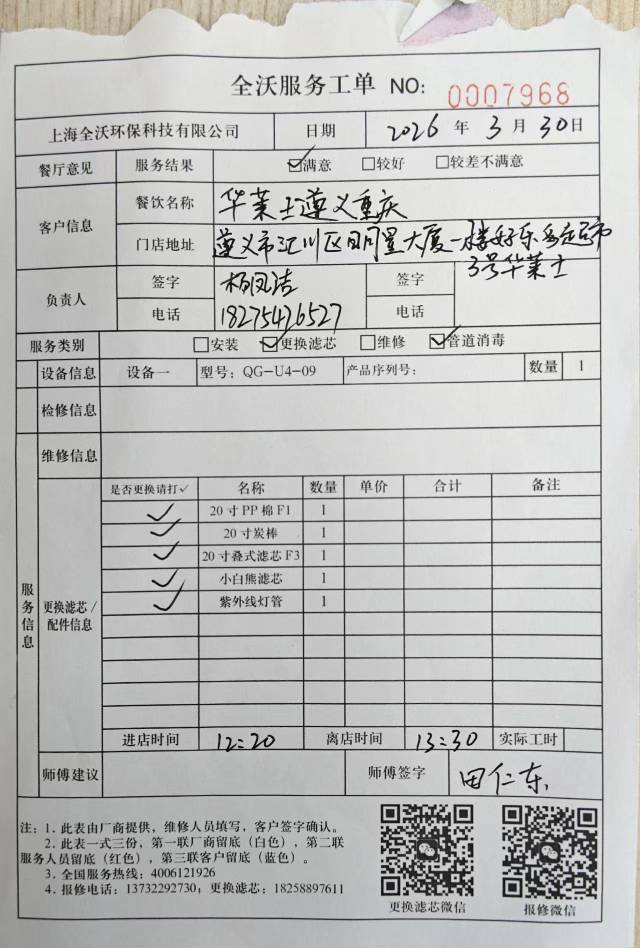 全沃服务工单 NO: 0007968
上海全沃环保科技有限公司 日期 2026 年 3 月 30 日
餐厅意见 服务结果 ☑满意 □较好 □较差不满意
客户信息 餐饮名称 华莱士遵义重庆
门店地址 遵义市汇川区 大厦一楼好乐多超市
3号华莱士
负责人 签字 杨凤洁 签字
电话 18275426527 电话
服务类别 □安装 ☑更换滤芯 □维修 ☑管道消毒
设备信息 设备一 型号: QG-U4-09 产品序列号: 数量 1
检修信息
服务信息
维修信息
更换滤芯/配件信息
是否更换请打✓ 名称 数量 单价 合计 备注
✓ 20寸PP棉F1 1
✓ 20寸炭棒 1
✓ 20寸叠式滤芯F3 1
✓ 小白熊滤芯 1
✓ 紫外线灯管 1
进店时间 12:20 离店时间 13:30 实际工时
师傅建议 师傅签字 田仁东
注: 1. 此表由厂商提供, 维修人员填写, 客户签字确认。
2. 此表一式三份, 第一联厂商留底(白色), 第二联
服务人员留底(红色), 第三联客户留底(蓝色)。
3. 全国服务热线: 4006121926
4. 报修电话: 13732292730; 更换滤芯: 18258897611
更换滤芯微信 报修微信